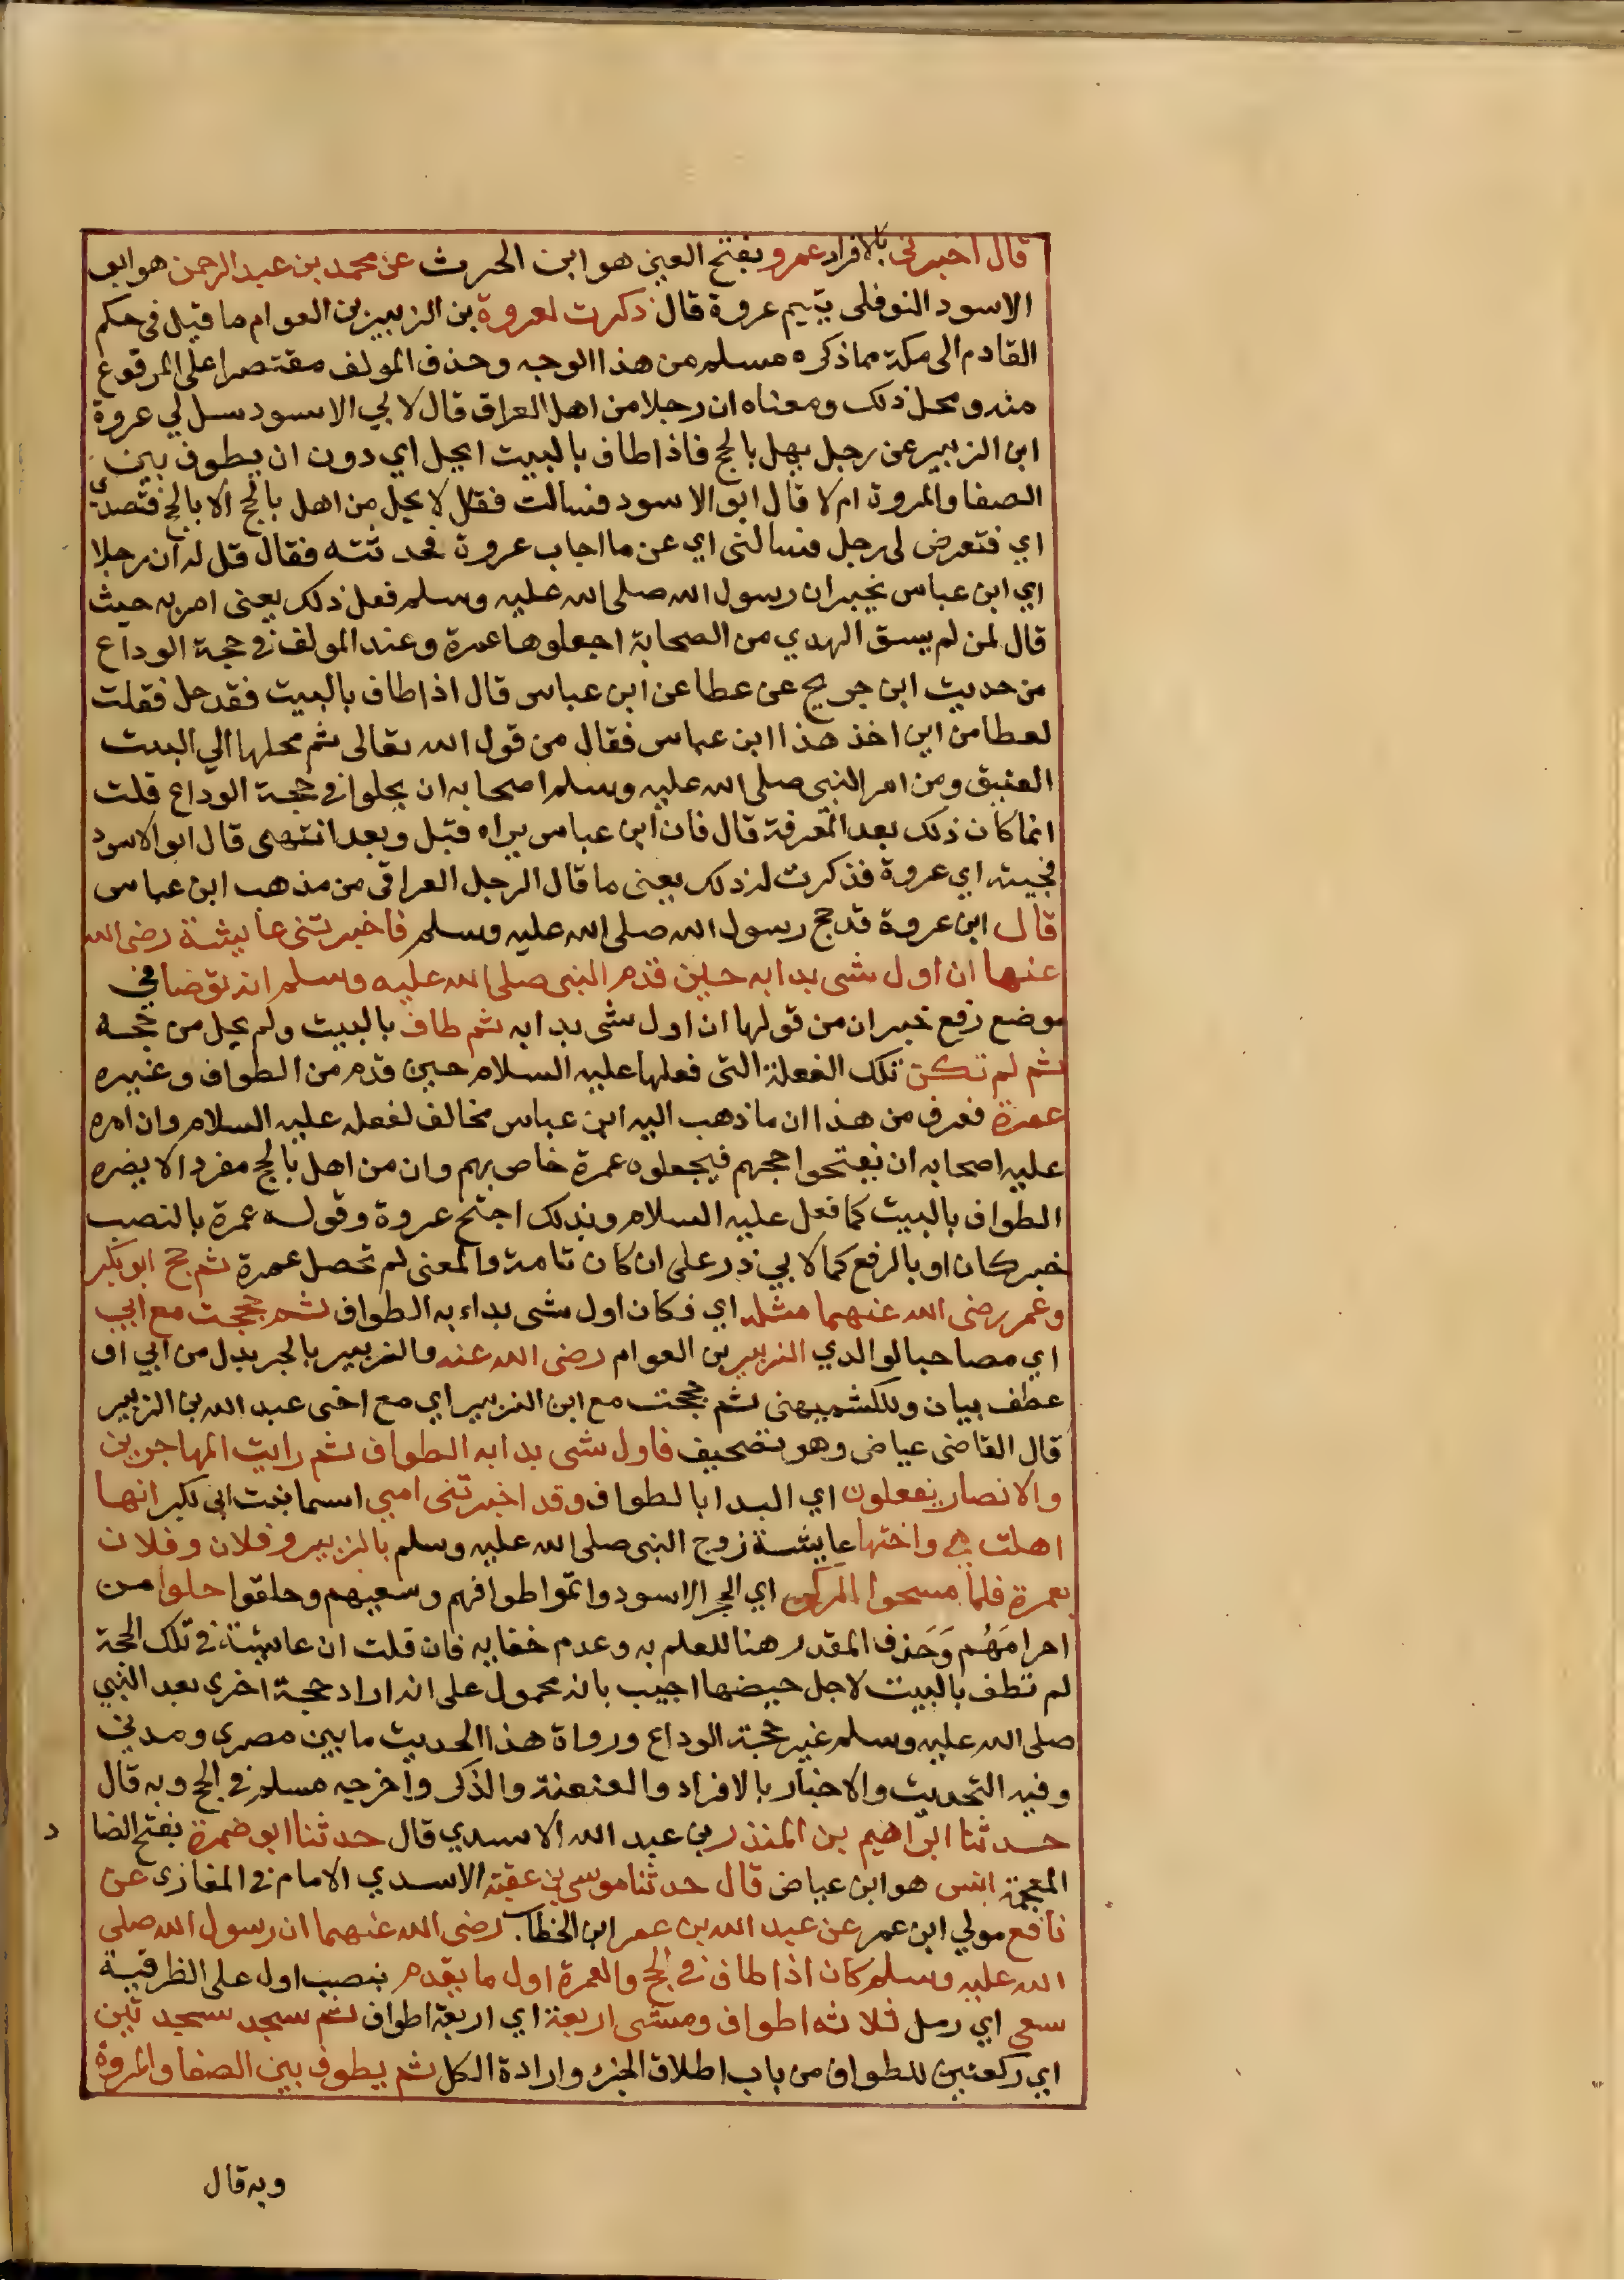 قال اخبرني بالافراد عمرو بفتح العين هو ابن الحرث عن محمد بن عبد الرحمن هو ابو
الاسود النوفلي يتيم عروة قال ذكرت لعروة بن الزبير بن العوام ما قيل في حكم
القادم الى مكة مما ذكره مسلم من هذا الوجه وحذف المولف مقتصرا على المرفوع
منه ومحل ذلك ومعناه ان رجلا من اهل العراق قال لابي الاسود سل لي عروة
ابن الزبير عن رجل يهل بالحج فاذا طاف بالبيت ايحل اي دون ان يطوف بين
الصفا والمروة ام لا قال ابو الاسود فسالت فقال لا يحل من اهل بالحج الا بالحج فتصدى
اي فتعرض لي رجل فسالني اي عن ما اجاب عروة فحدثته فقال قل له ان رجلا
اي ابن عباس يخبر ان رسول الله صلى الله عليه وسلم فعل ذلك يعني امر به حيث
قال لمن لم يسق الهدي من الصحابة اجعلوها عمرة وعند المولف في حجة الوداع
من حديث ابن جريج عن عطا عن ابن عباس قال اذا طاف بالبيت فقد حل فقلت
لعطا من اين اخذ هذا ابن عباس فقال من قول الله تعالى ثم محلها الي البيت
العتيق ومن امر النبي صلى الله عليه وسلم اصحابه ان يحلوا في حجة الوداع قلت
انما كان ذلك بعد المعرفة قال فان ابن عباس يراه قبل وبعد انتهى قال ابو الاسود
فجيته اي عروة فذكرت له ذلك يعني ما قال الرجل العراقي من مذهب ابن عباس
قال ابن عروة قد حج رسول الله صلى الله عليه وسلم فاخبرتني عايشة رضي الله
عنها ان اول شى بدا به حين قدم النبي صلى الله عليه وسلم انه توضا في
موضع رفع خبر ان من قولها ان اول شى بدا به ثم طاف بالبيت ولم يحل من حجه
ثم لم تكن تلك الفعلة التي فعلها عليه السلام حين قدم من الطواف وغيره
عمرة فعرف من هذا ان ما ذهب اليه ابن عباس مخالف لفعله عليه السلام وان امره
عليه اصحابه ان يفتحوا حجهم فيجعلوه عمرة خاص بهم وان من اهل بالحج مفردا لا يضره
الطواف بالبيت كما فعل عليه السلام وبذلك احتج عروة وقوله عمرة بالنصب
خبر كان او بالرفع كما لابي ذر على ان كان تامة والمعنى لم تحصل عمرة ثم حج ابو بكر
وعمر رضي الله عنهما مثله اي فكان اول شى بداء به الطواف ثم حججت مع ابي
اي مصاحبا لوالدي الزبير بن العوام رضي الله عنه والزبير بالجر بدل من ابي او
عطف بيان وللكشميهني ثم حججت مع ابن الزبير اي مع اخي عبد الله بن الزبير
قال القاضي عياض وهو تصحيف فاول شى بدا به الطواف ثم رايت المهاجرين
والانصار يفعلون اي البدا بالطواف وقد اخبرتني امي اسما بنت ابي بكر انها
اهلت هي واختها عايشة زوج النبي صلى الله عليه وسلم بالزبير وفلان وفلان
بعمرة فلما مسحوا الركن اي الحجر الاسود واتموا طوافهم وسعيهم وحلقوا حلوا من
احرامَهُم وَحَذف المقدر هنا للعلم به وعدم خفايه فان قلت ان عايشة في تلك الحجة
لم تطف بالبيت لاجل حيضها اجيب بانه محمول على انه اراد حجة اخرى بعد النبي
صلى الله عليه وسلم غير حجة الوداع ورواة هذا الحديث ما بين مصري ومدني
وفيه التحديث والاخبار بالافراد والعنعنة والذكر واخرجه مسلم في الحج وبه قال
حدثنا ابراهيم بن المنذر بن عبد الله الاسدي قال حدثنا ابو ضمرة بفتح الضا د
المعجمة انس هو ابن عياض قال حدثنا موسى بن عقبة الاسدي الامام في المغازى عن
نافع مولي ابن عمر عن عبد الله بن عمر ابن الخطاب رضي الله عنهما ان رسول الله صلى
الله عليه وسلم كان اذا طاف في الحج والعمرة اول ما يقدم بنصب اول على الظرفية
سعى اي رمل ثلاثه اطواف ومشى اربعة اي اربعة اطواف ثم سجد سجدتين
اي ركعتين للطواف من باب اطلاق الجزء وارادة الكل ثم يطوف بين الصفا والمروة
وبه قال